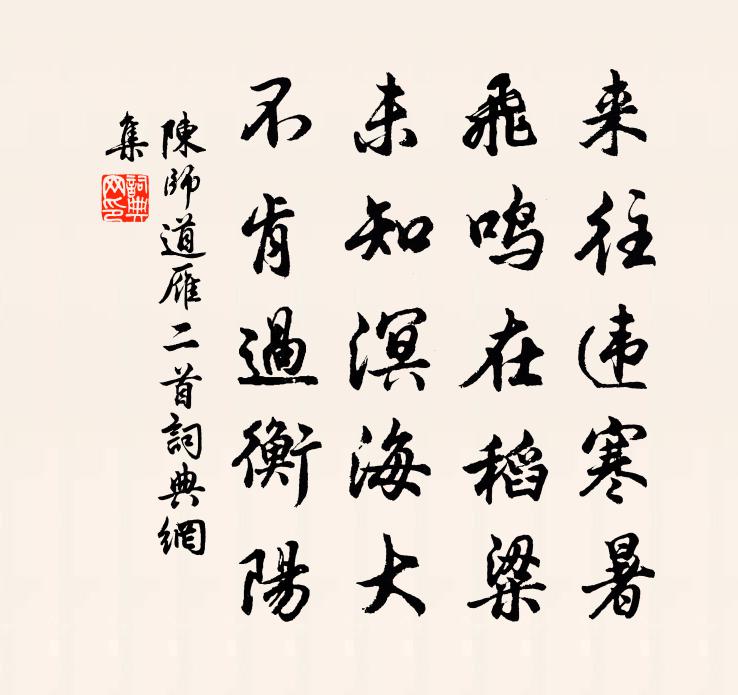 来往违寒暑
飛鸣在稻粱
未知溟海大
不肯過衡陽
陳師道雁二首詞典網
集
詞典
网印